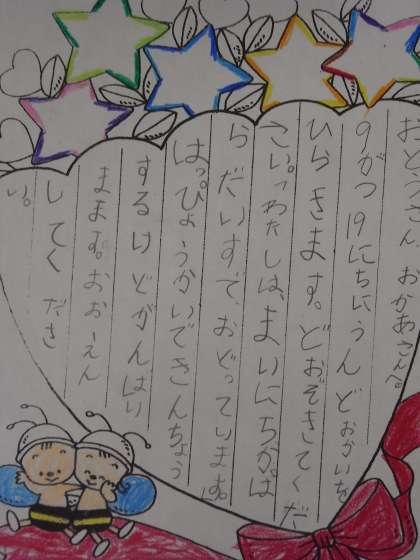 おとうさん おかあさんへ。
9がつ19にちにうんどおかいを
ひらきます。どおぞきてくだ
さい。わたしは、まいにちがは
らだいすで、おどっています。
はっぴょうかいできんちょう
するけどがんばり
まます。おおーえん
してくださ
い。